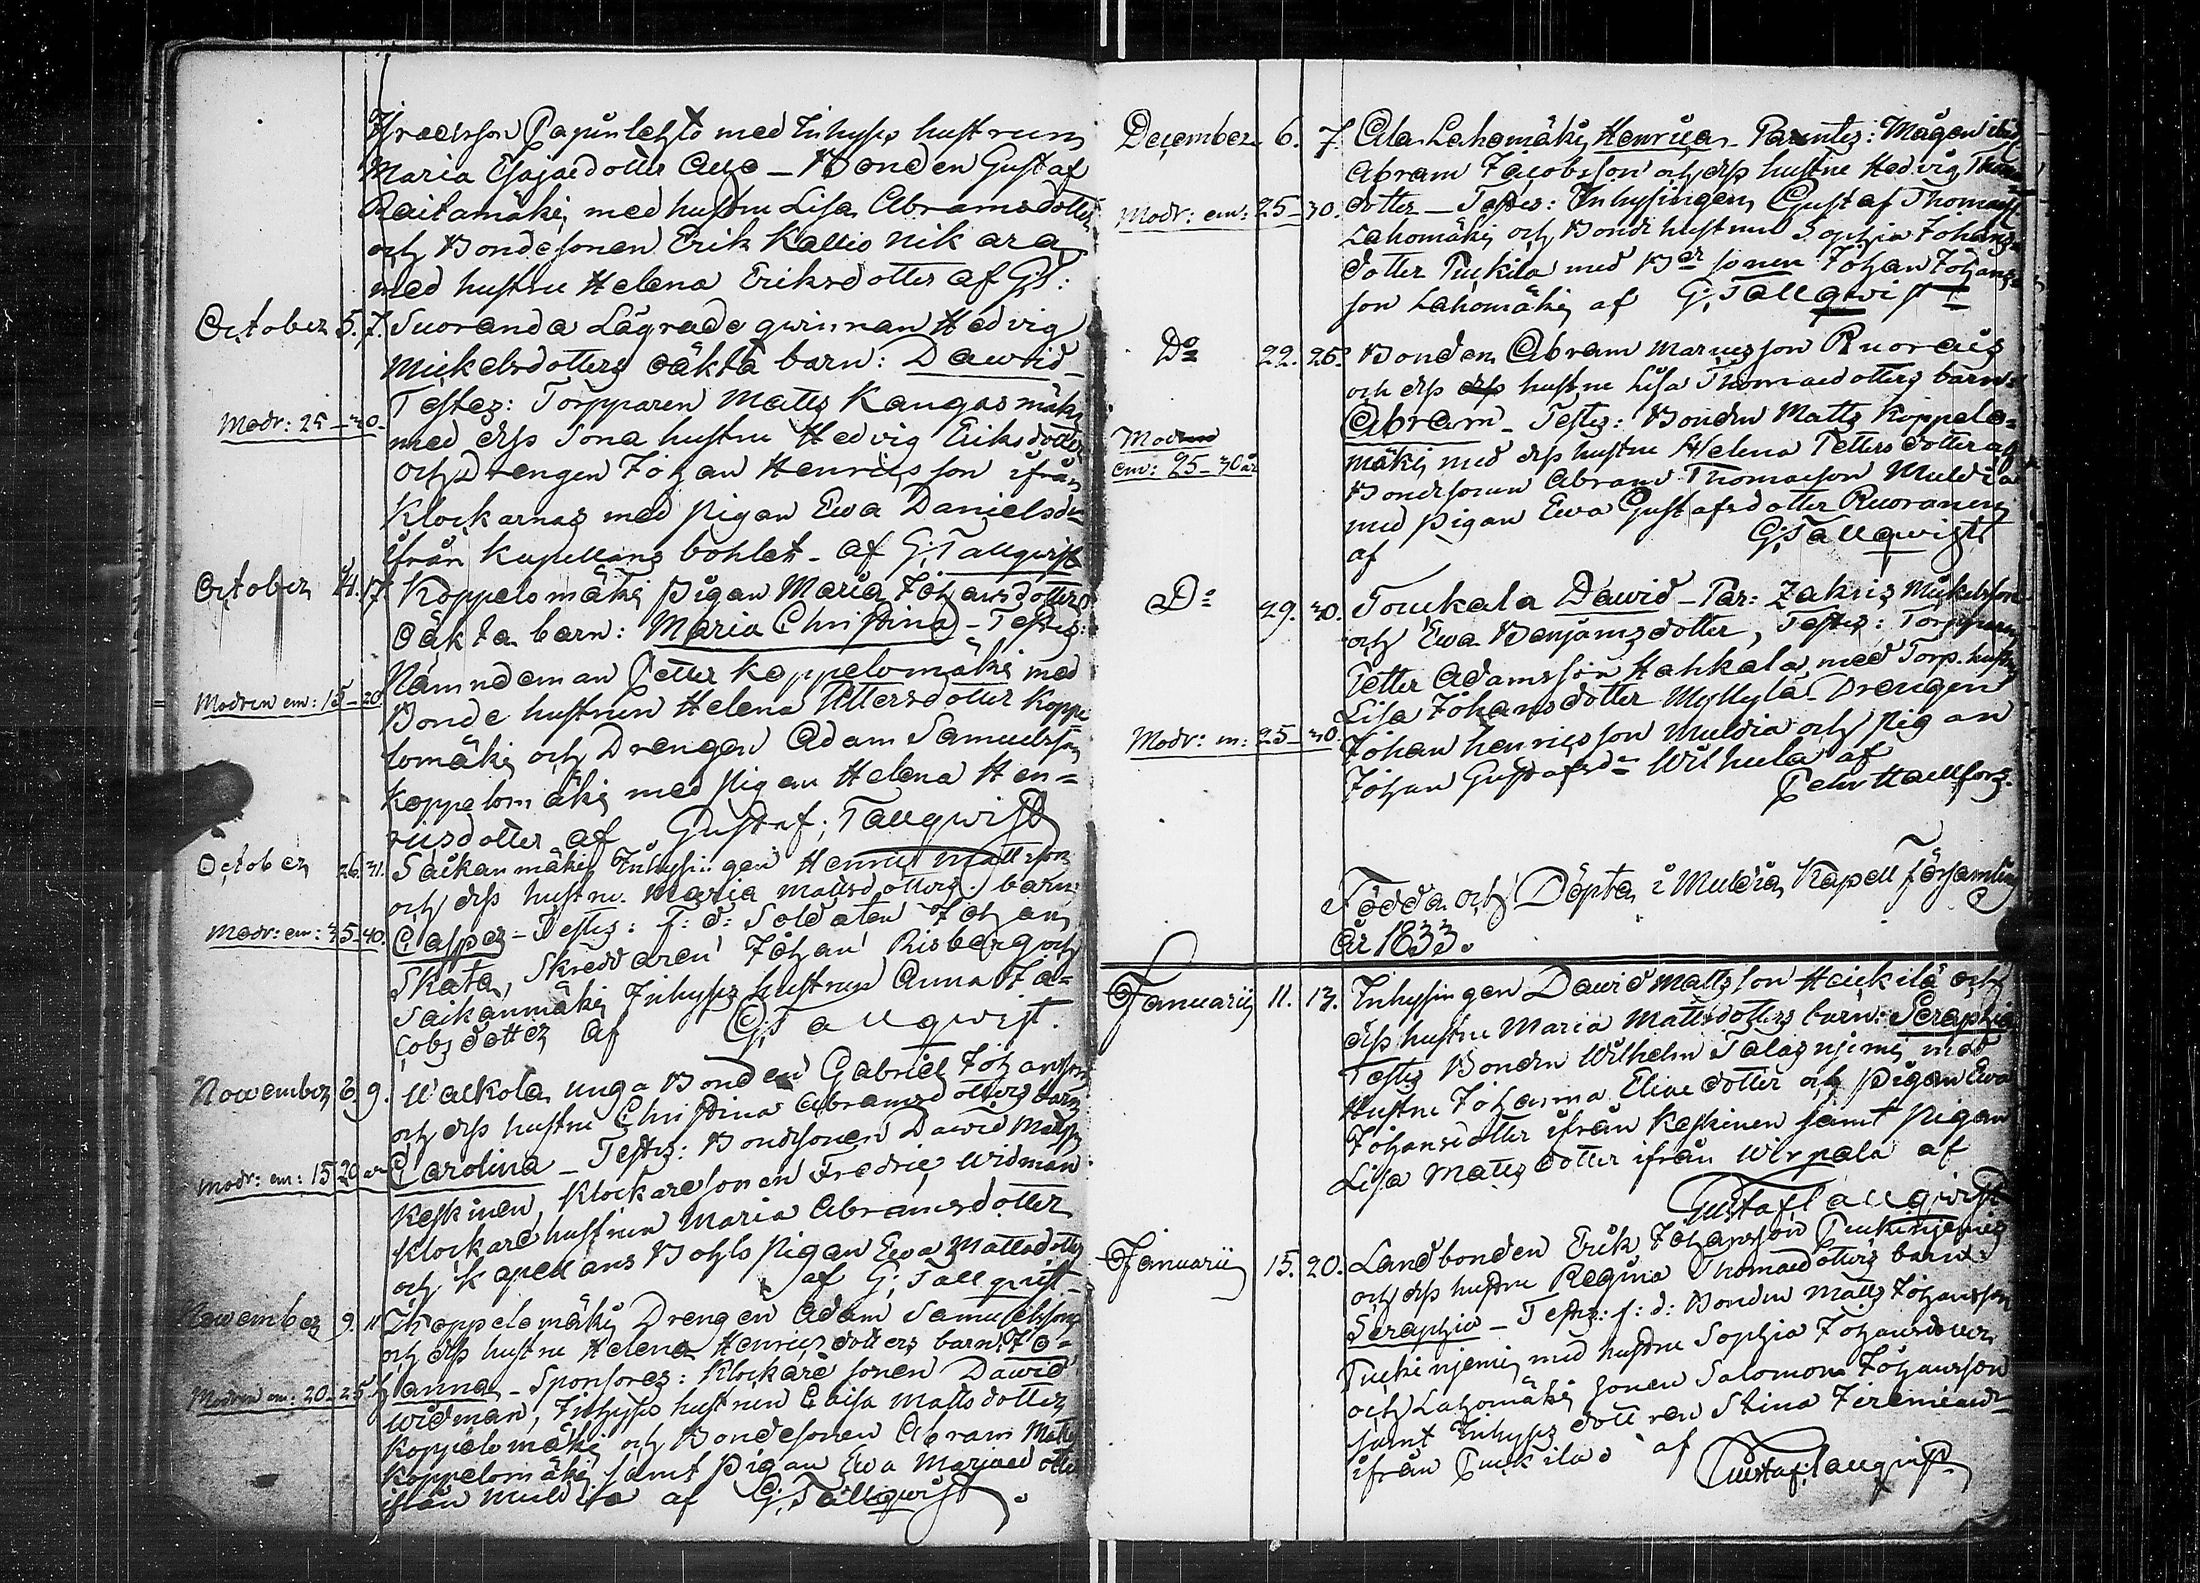 Papinlehto med Inhyses hustrun
Maria Esajaedotter Allo - Bonden Gustaf
Raitamäki, med hustru Lisa Abramsdotter
och Bondesonen Erik Kallio nikara
med hustru Helena Eriksdotter af GT:
October 5. 7. Suoranda Lägrade qwinnan Hedvig
Mickelsdotters oäkta barn: Dawid -
Modr: 25-30. Testes: Torpparen Matts Kangasmäki
med dess Sona hustru Hedvig Eriksdotter
och Drengen Johan Henricsson ifrån
Klockarnas med pigan Ewa Danielsdr
ifrån Kapellans bohlet - af G; Tallqwist
October 14. 17 Koppelomäki pigan Maria Johansdotters
oäkta barn: Maria Christina - Testes:
Nämndeman Petter Koppelomäki med
Modren em: 15-20. Bonde hustrun Helena Pettersdotter Koppe
lomäki och Drengen Adam Samuelsson
Koppelomäki med pigan Helena Hen=
ricsdotter af Gustaf; Tallqwist
October 26. 31. Saikanmäki Inhysingen Henric Mattsson
och dess hustru Maria Mattsdotters barn:
Modr: em: 35-40. Casper - Testes: f: d: Soldaten Johan
Skata, Skreddaren Johan Risberg och
Saikanmäki Inhyses hustrun Anna Ja=
cobsdotter af G; Tallqwist.
Nowember 6. 9. Walkola unga Bonden Gabriel Johansson
och dess hustru Christina Abramsdotters barn
Modr: em: 15 20 år Carolina - Testes: Bondesonen Dawid Matsson
Keskinen, Klockaresonen Fredric Widman
Klockarehustrun Maria Abramsdotter
och Kapellans Bohls pigan Ewa Mattsdotter
af G; Tallqwist -
Nowember 9. 11 Koppelomäki Drengen Adam Samuelsson
och dess hustru Helena Henricsdotters barn: Jo=
Modren em: 20-25 hanna - Sponsores: Klockare sonen Dawid
Widman, Inhyses hustrun Caisa Mattsdotter
Koppelomäki och Bondesonen Abram Matts
Koppelomäki samt pigan Ewa Mariaedotter
ifrån Muldia af G; Tallqwist.
December 6. 7. Ala Lahomäki, Henrica - Parentes: Mågen ibid
Abram Jacobsson och dess hustru Hedvig Thomae
Modr: em: 25-30. dotter - Testes: Inhysingen Gustaf Thomass.
Lahomäki och Bonde hustrun Sophia Johans=
dotter Pukila med Bde sonen Johan Johans=
son Lahomäki af G; Tallqwist
Do 22. 26. Bonden Abram Mariesson Ruorais
och dess hustru Lisa Thomaedotters barn:
Abram - Testes: Bonden Matts Koppelo=
Modren
em: 25-30 år
mäki med dess hustru Helena Pettersdotter och
Bondesonen Abram Thomaeson Muldia
med pigan Ewa Gustafsdotter Ruoranen
af G; Tallqwist
Do 29. 30. Toukala Dawid - Par: Zakris Mickelsson
och Ewa Benjamsdotter, Testes: Torpparen
Petter Adamsson Hahkala med Torp. hustru
Lisa Johansdotter Myllylä - Drengen
Modr: em: 25-30. Johan Henricsson Muldia och pigan
Johan Gustafsdr Wilhula af
Pehr Hallfors.
Födda och Döpta i Muldia Kapell Församling
år 1833.
Januarii 11. 13. Inhysingen Dawid Mattsson Heickilä och
dess hustru Maria Mattsdotters barn: Seraphia
Testes Bonden Wilhelm Talasnjemi, med
Hustru Johanna Eliaedotter och pigan Ewa
Johansdotter ifrån Keskinen samt pigan
Lisa Mattsdotter ifrån Wirpala af
Gustaf Tallqwist
Januarii 15. 20. Landbonden Erik Johansson Puckinjemi
och dess hustru Regina Thomaedotters barn:
Seraphia - Testes: f: d: Bonden Matts Johansson
Puckinjemi, med hustru Sophia Johansdotter
och Lahomäki sonen Salomon Johansson
samt Inhyses dottren Stina Jeremiaedr
ifrån Puckila af Gustaf; Tallqwist